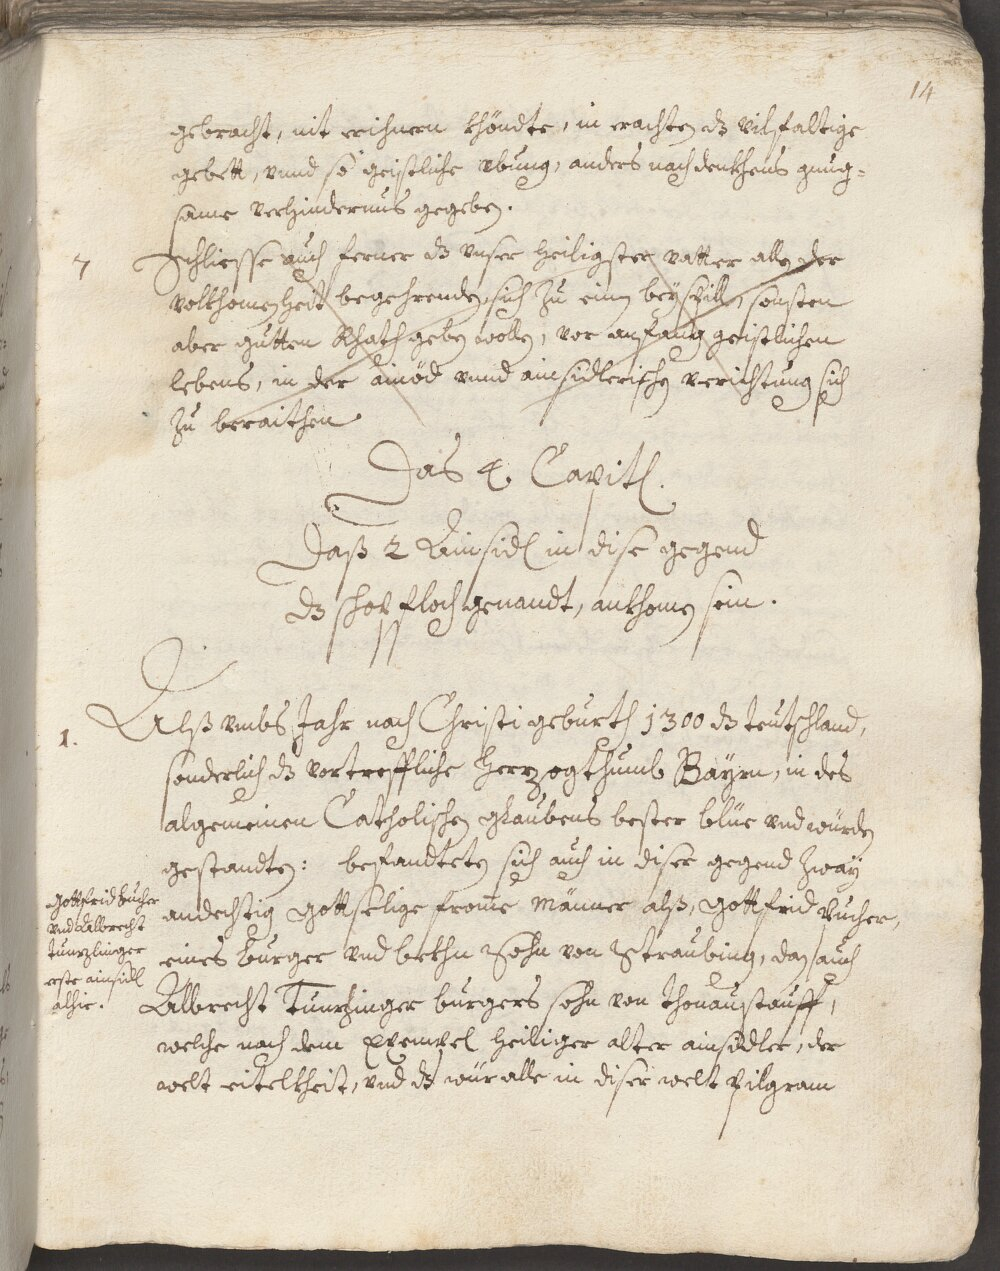 14
gebracht, nit erihnern khöndte, in erachten dz vilfaltige
gebett, vnnd so geistliche vbung, anders nachdenkhens gnug-
same verhindernus gegeben.
7 Schliesse auch ferner dz vnser heiligster vatter allen der
volkhomenheit begehrenden, sich zu einem beyspill, sonsten
aber gutten Rhath geben wollen, vor anfang geistlichen
lebens, in der ainöd vnnd ainsidlerischen verichtung sich
zu beraithen
Das 4. Capitl.
Daß 2 Ainsidl in dise gegend
dz schopfloch genandt, ankhomen sein.
1. Alß vmbs Jahr nach Christi geburth 1300 dz teutschland,
sonderlich dz vortreffliche herzogthumb Bayrn, in des
algemeinen Catholischen glaubens bester blüe vnd würden
gestandten: befandteten sich auch in diser gegend zway
andechtig gottselige frome Männer alß, Gottfrid Bucher,
eines burger vnd bekhn Sohn von Straubing, dan auch
Albrecht Tunzlinger burgers sohn von Thonaustauff,
welche nach dem exempel heiliger alter ainsidler, der
welt eitelkheit, vnd dz wür alle in diser welt bilgram
Gottfrid Bucher
vnd Albrecht
Tunzlinger
erste ainsidl
alhie.